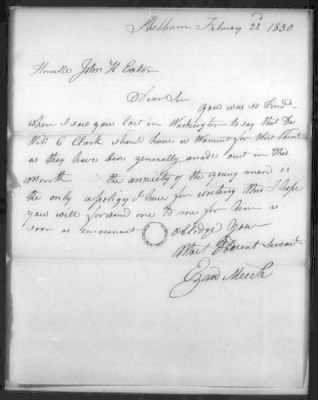 Shelburn February 22d 1830
Honble John H Eaton
Dear Sir
you was so kind
when I saw you last in Washington to say that De
Witt C Clark should have a Warrant for West Point
as they have been generally made out in this
month the anxiety of the young man is
the only apology I have for writing this I hope
you will forward one to me for him as
soon as convenient & oblidge your
Most Obedient Servant
Ezra Meech